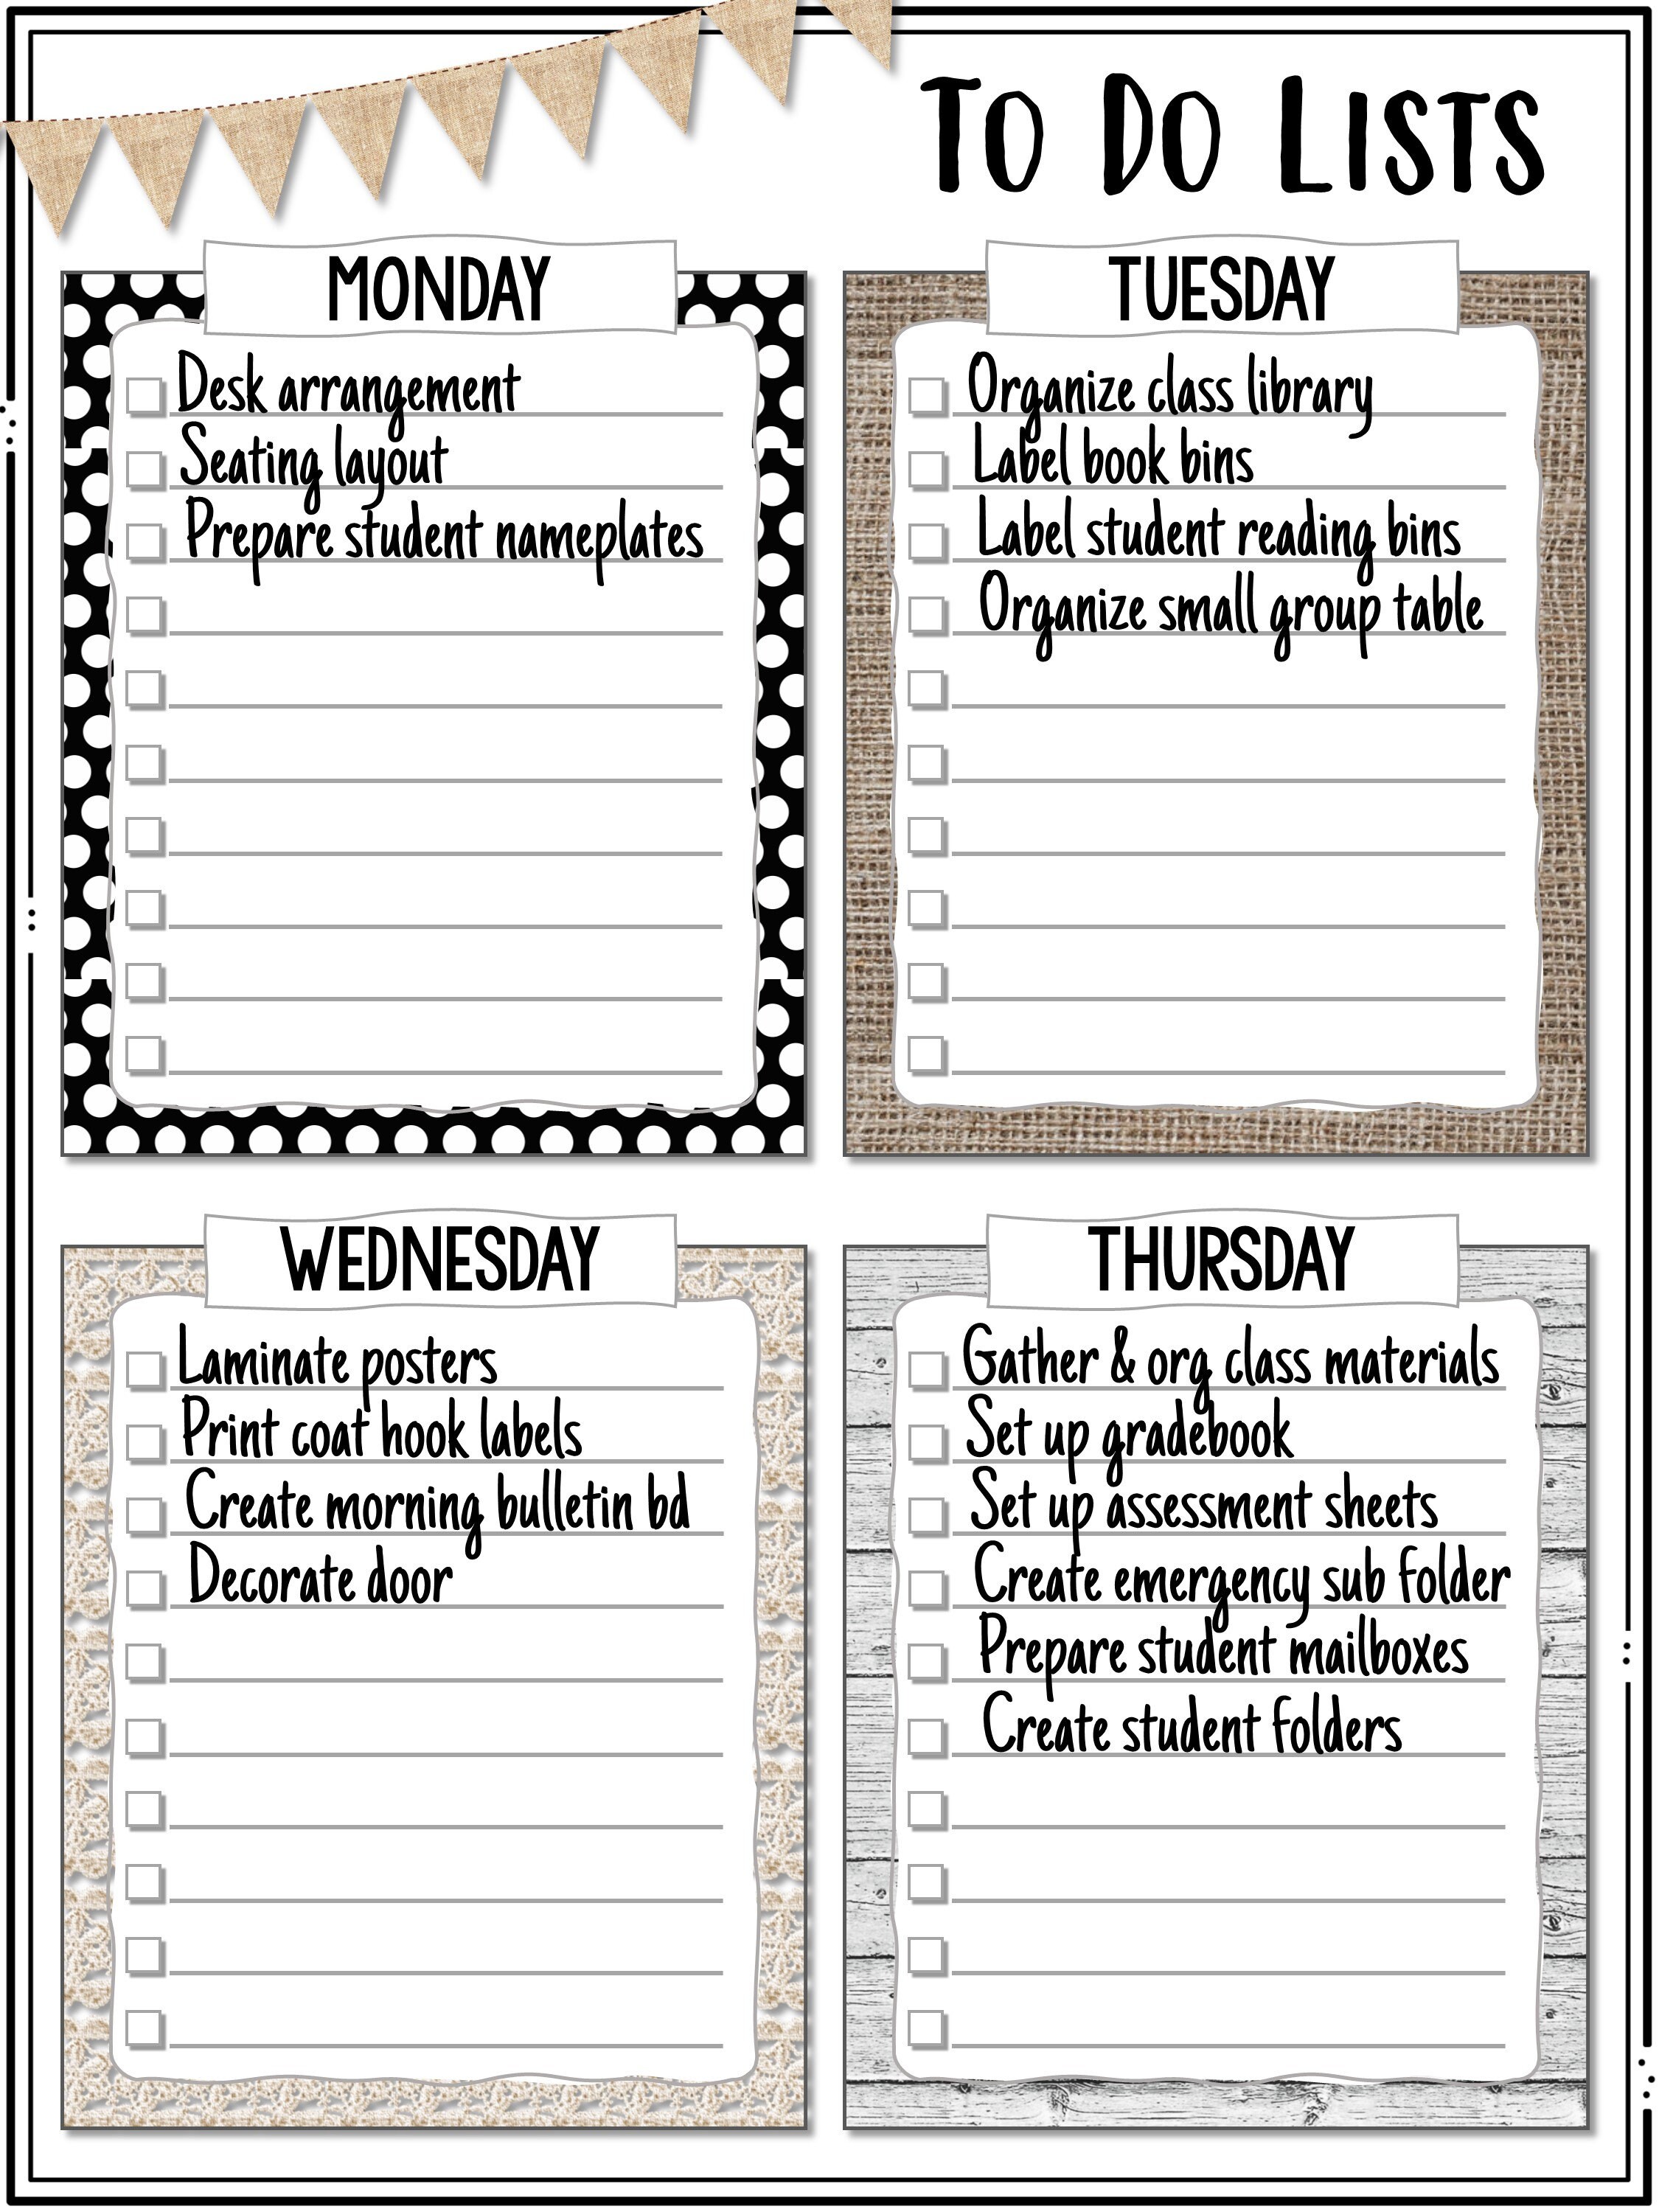 To Do Lists
MONDAY
Desk arrangement
Seating layout
Prepare student nameplates
TUESDAY
Organize class library
Label book bins
Label student reading bins
Organize small group table
WEDNESDAY
Laminate posters
Print coat hook labels
Create morning bulletin bd
Decorate door
THURSDAY
Gather & org class materials
Set up gradebook
Set up assessment sheets
Create emergency sub folder
Prepare student mailboxes
Create student folders